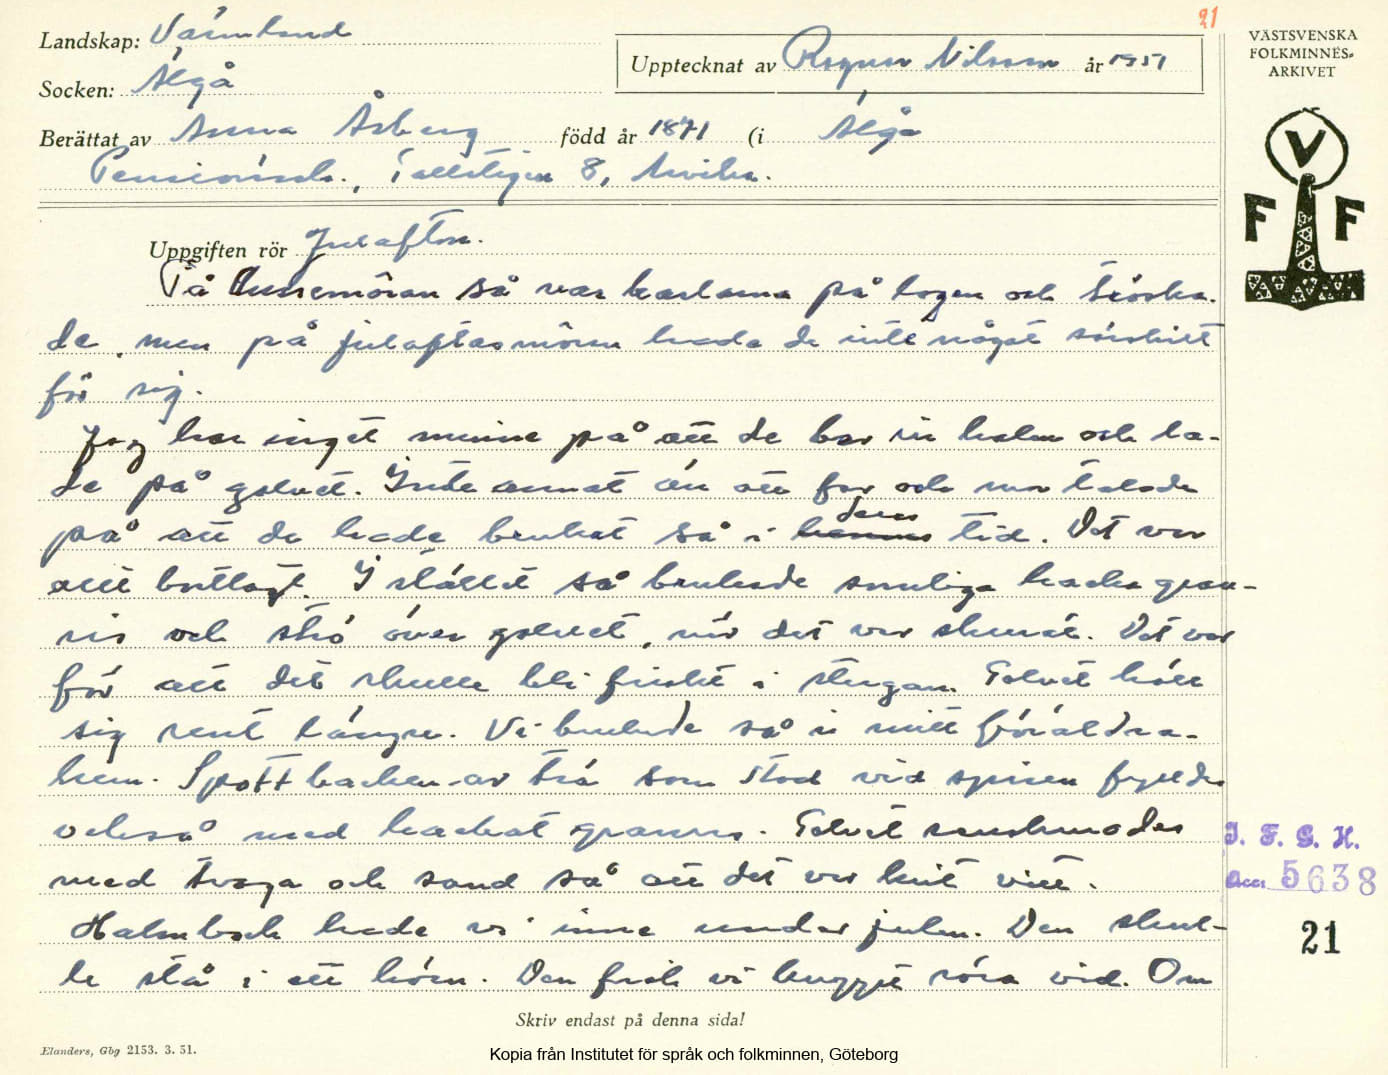 21
Landskap: Värmland
Upptecknat av Ragnar Nilsson år 1951
VÄSTSVENSKA
FOLKMINNES-
ARKIVET
Socken: Älgå
Berättat av Anna Åsberg född år 1871 (i Älgå
Pensionärsh., 8, Arvika.
V
F F
Uppgiften rör Julafton.
På Lussemôran så var karlarna på logen och tröska-
de, men på julaftasmôron hade de inte något särskilt
för sig.
Jag har inget minne på att de bar in halm och la-
de på golvet. Inte annat än att far och mor talade
på att de hade brukat så i hennes deras tid. Det var
allt bortlagt. I stället så brukade somliga hacka gran-
ris och strö över golvet, när det var skurat. Det var
för att det skulle bli friskt i stugan. Golvet höll
sig rent längre. Vi brukade så i mitt föräldra-
hem. Spottbacken av trä som stod vid spisen fylldes
också med hackat granris. Golvet renskurades
med tvaga och sand så att det var helt vitt.
Halmbock hade vi inne under julen. Den skul-
le stå i ett hörn. Den fick vi knappt röra vid. Om
I. F. G. H.
Acc: 5638
21
Skriv endast på denna sida!
Elanders, Gbg 2153. 3. 51.
Kopia från Institutet för språk och folkminnen, Göteborg